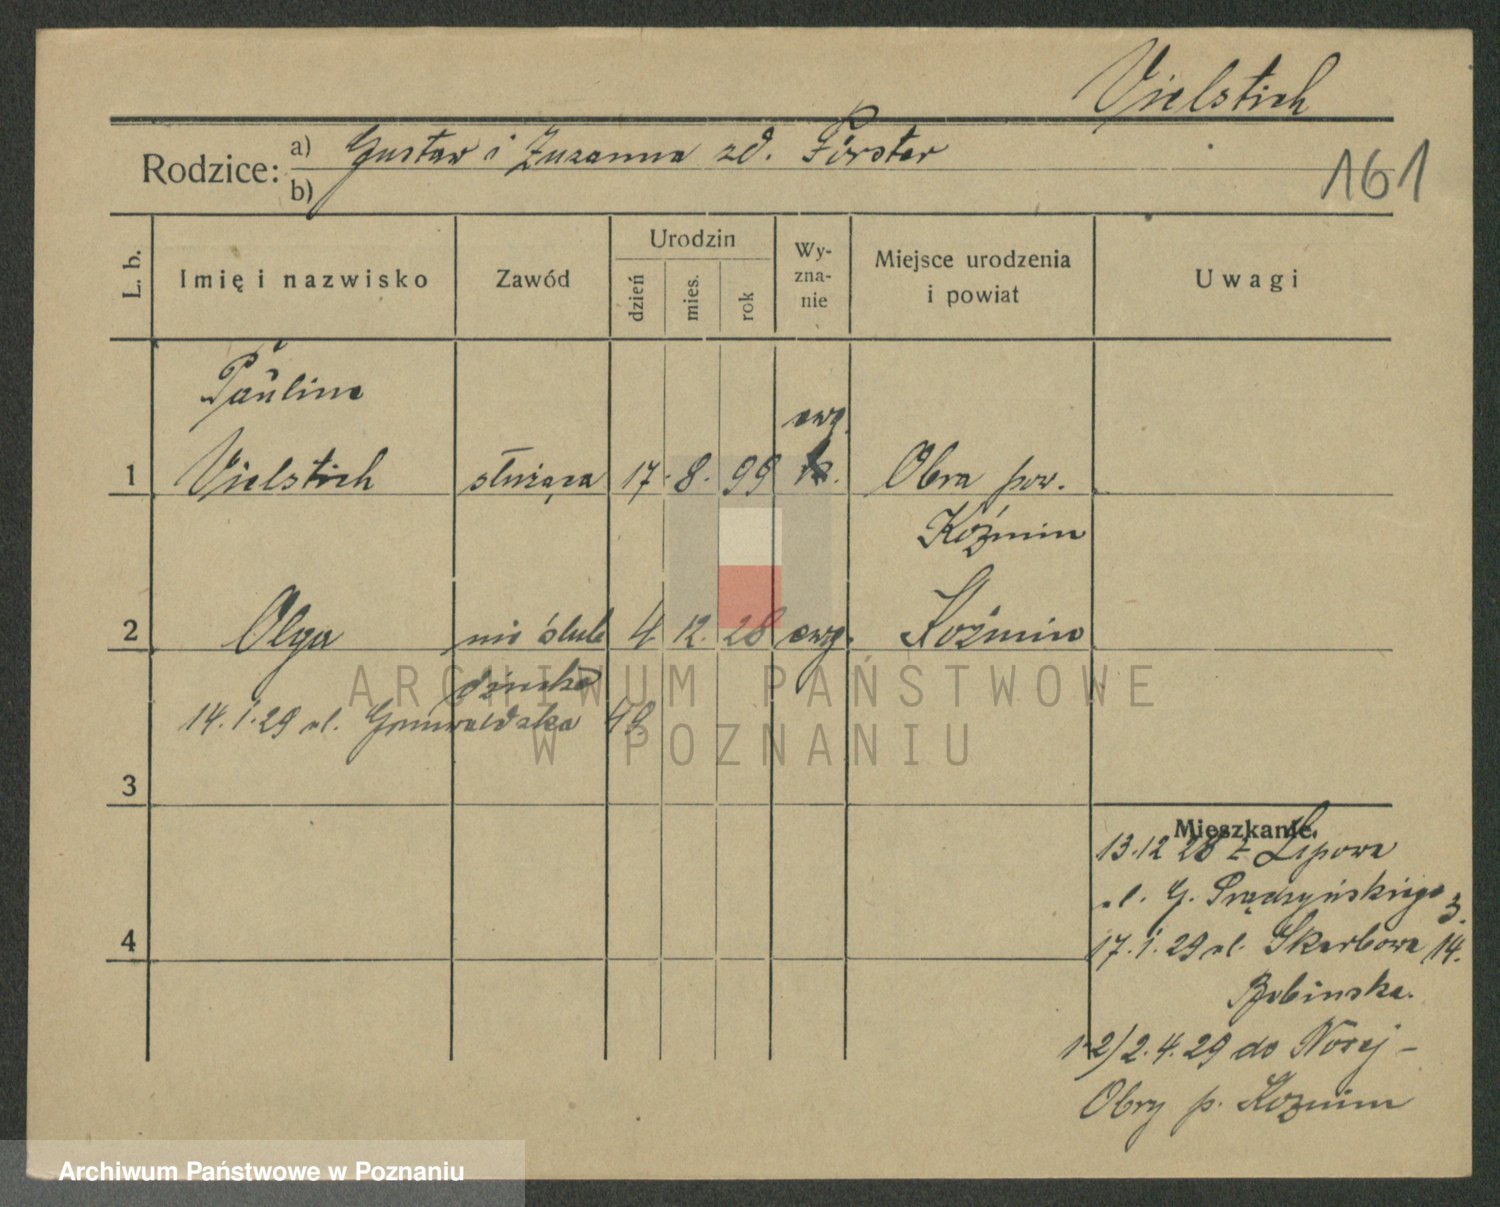 Vielstich
161
Rodzice: a) Gustaw i Zuzanna zd. Förster
b)
L. b.
Imię i nazwisko
Zawód
Urodzin
dzień
mies.
rok
Wy-
zna-
nie
Miejsce urodzenia
i powiat
Uwagi
Paulina
ewg.
1 Vielstich służąca 17. 8. 99 Obra pow.
Koźmin
2 Olga nie ślub 4. 12. 28 ewg. Koźmin
14.1.29 ul. Grunwaldzka
3
4
Mieszkanie
13.12 28 z Lipowa
ul. G. Prądzyńskiego 3.
17.1.29 ul. Skarbowa 14.
1-2) 2.4.29 do Nowej-
Obry p. Kozmin
ARCHIWUM PAŃSTWOWE
W POZNANIU
Archiwum Państwowe w Poznaniu